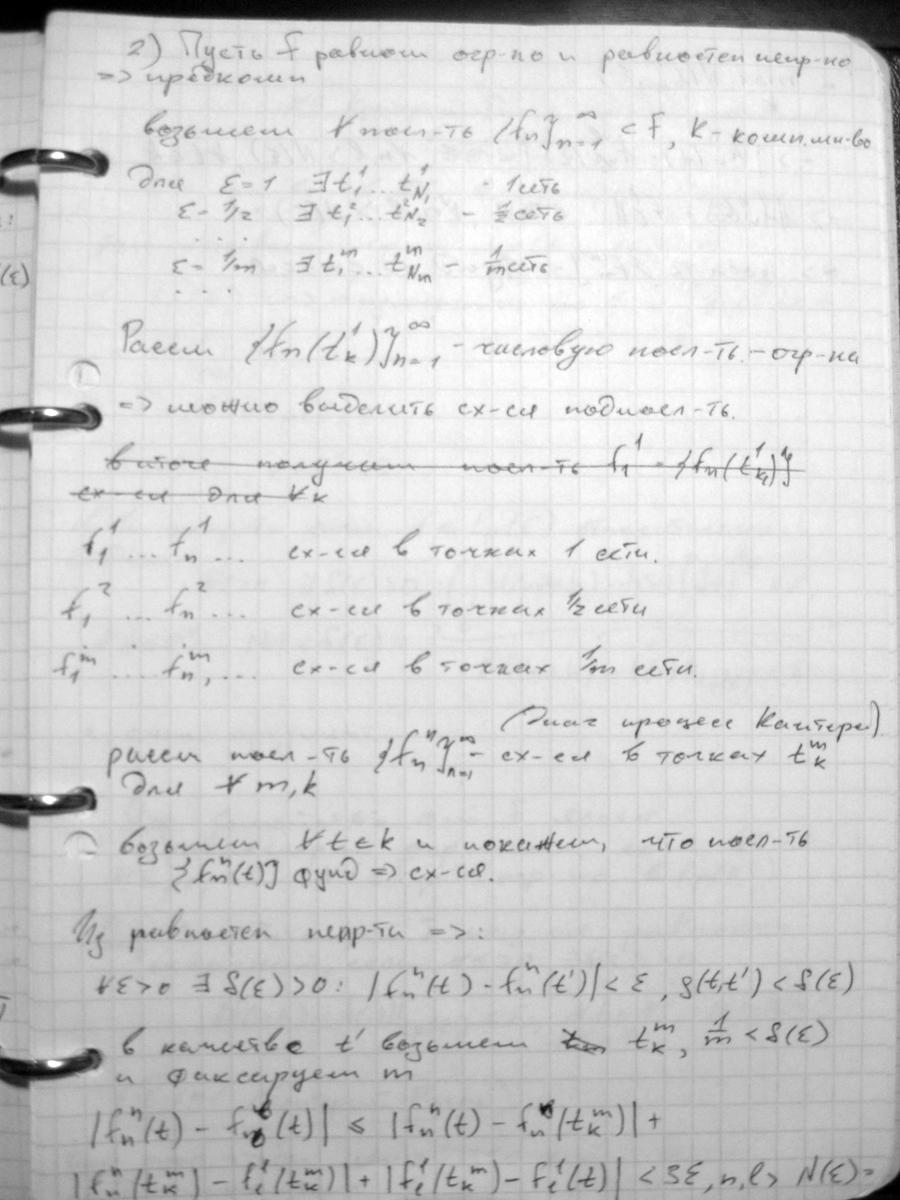 2) Пусть F равном огр-но и равностеп непр-но
=> предкомп
возьмем ∀ посл-ть {fn}n=1^∞ ⊂ F, K - комп. мн-во
Для ε=1 ∃ t₁¹...t¹N₁ - 1 сеть
ε=1/2 ∃ t₁²...t²N₂ - 1/2 сеть
. . .
ε=1/m ∃ t₁ᵐ...tᵐNm - 1/m сеть
. . .
Рассм {fn(t¹k)}n=1^∞ - числовую посл-ть - огр-на
=> можно выделить сх-ся подпосл-ть.
в итоге получим посл-ть f₁¹ = {fn(t¹k)}
сх-ся для ∀k
f₁¹ ... fn¹ ... сх-ся в точках 1 сети.
f₁² ... fn² ... сх-ся в точках 1/2 сети
. . .
f₁ᵐ ... fnᵐ, ... сх-ся в точках 1/m сети.
(Диаг процесс Кантора)
рассм посл-ть {fnⁿ}n=1^∞ - сх-ся в точках tᵐk
для ∀ m, k
возьмем ∀ t∈k и покажем, что посл-ть
{fnⁿ(t)} фунд => сх-ся.
Из равностеп непр-ти =>:
∀ε>0 ∃ δ(ε)>0: |fnⁿ(t) - fnⁿ(t')| < ε, ρ(t,t') < δ(ε)
в качестве t' возьмем tᵐk, 1/m < δ(ε)
и фиксируем m
|fnⁿ(t) - (t)| ≤ |fnⁿ(t) - fnⁿ(tᵐk)| +
|fnⁿ(tᵐk) - fₗˡ(tᵐk)| + |fₗˡ(tᵐk) - fₗˡ(t)| < 3ε, n, l > N(ε) =